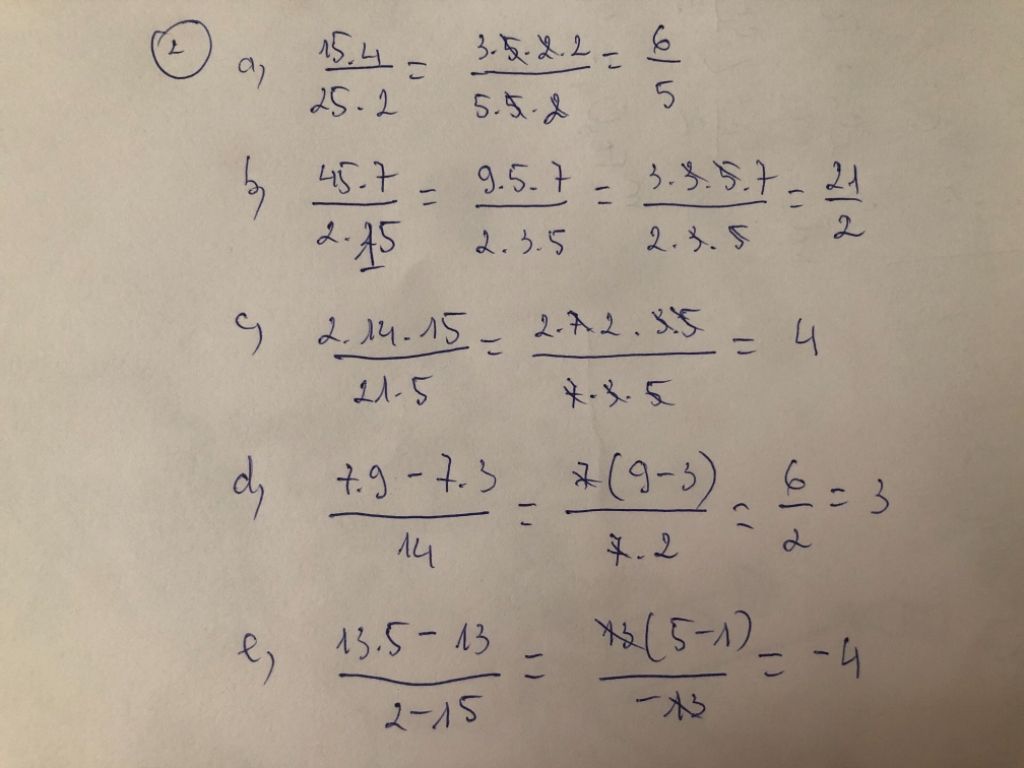 2 a, 15.4/25.2 = 3.5.2.2/5.5.2 = 6/5
b, 45.7/2.15 = 9.5.7/2.3.5 = 3.3.5.7/2.3.5 = 21/2
c, 2.14.15/21.5 = 2.7.2.3.5/7.3.5 = 4
d, 7.9-7.3/14 = 7(9-3)/7.2 = 6/2 = 3
e, 13.5-13/2-15 = 13(5-1)/-13 = -4